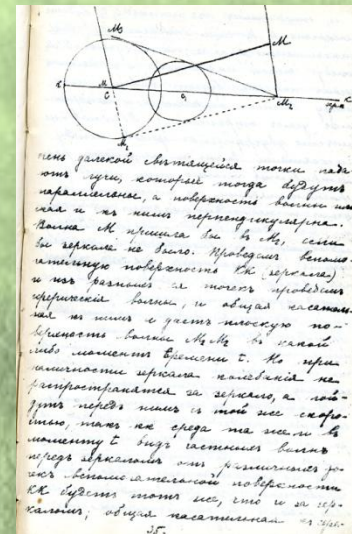 M₃
M
K
M
C
O,
M₂
K
M₁
чень далекой свѣтящейся точки пада
ютъ лучи, которые тогда будутъ
параллельные, а поверхность волны
ская и къ нимъ перпендикулярна.
Волна М пришла бы въ М₂, если
бы зеркала не было. Проведемъ вспомо-
гательную поверхность КК (зеркала)
и изъ разныхъ ея точекъ проведемъ
сферическія волны, и общая касатель
ная къ нимъ и даетъ плоскую по-
верхность волны М₃ М₂ въ какой
либо моментъ времени t. Но при
наличности зеркала колебанія не
распространятся за зеркало, а пой-
дутъ передъ нимъ съ той же скоро-
стью, такъ кк среда та же и въ
моменту t видъ частныхъ волнъ
передъ зеркаломъ отъ различныхъ то-
чекъ вспомогательной поверхности
КК будетъ тотъ же, что и за зер-
каломъ; общая касательная